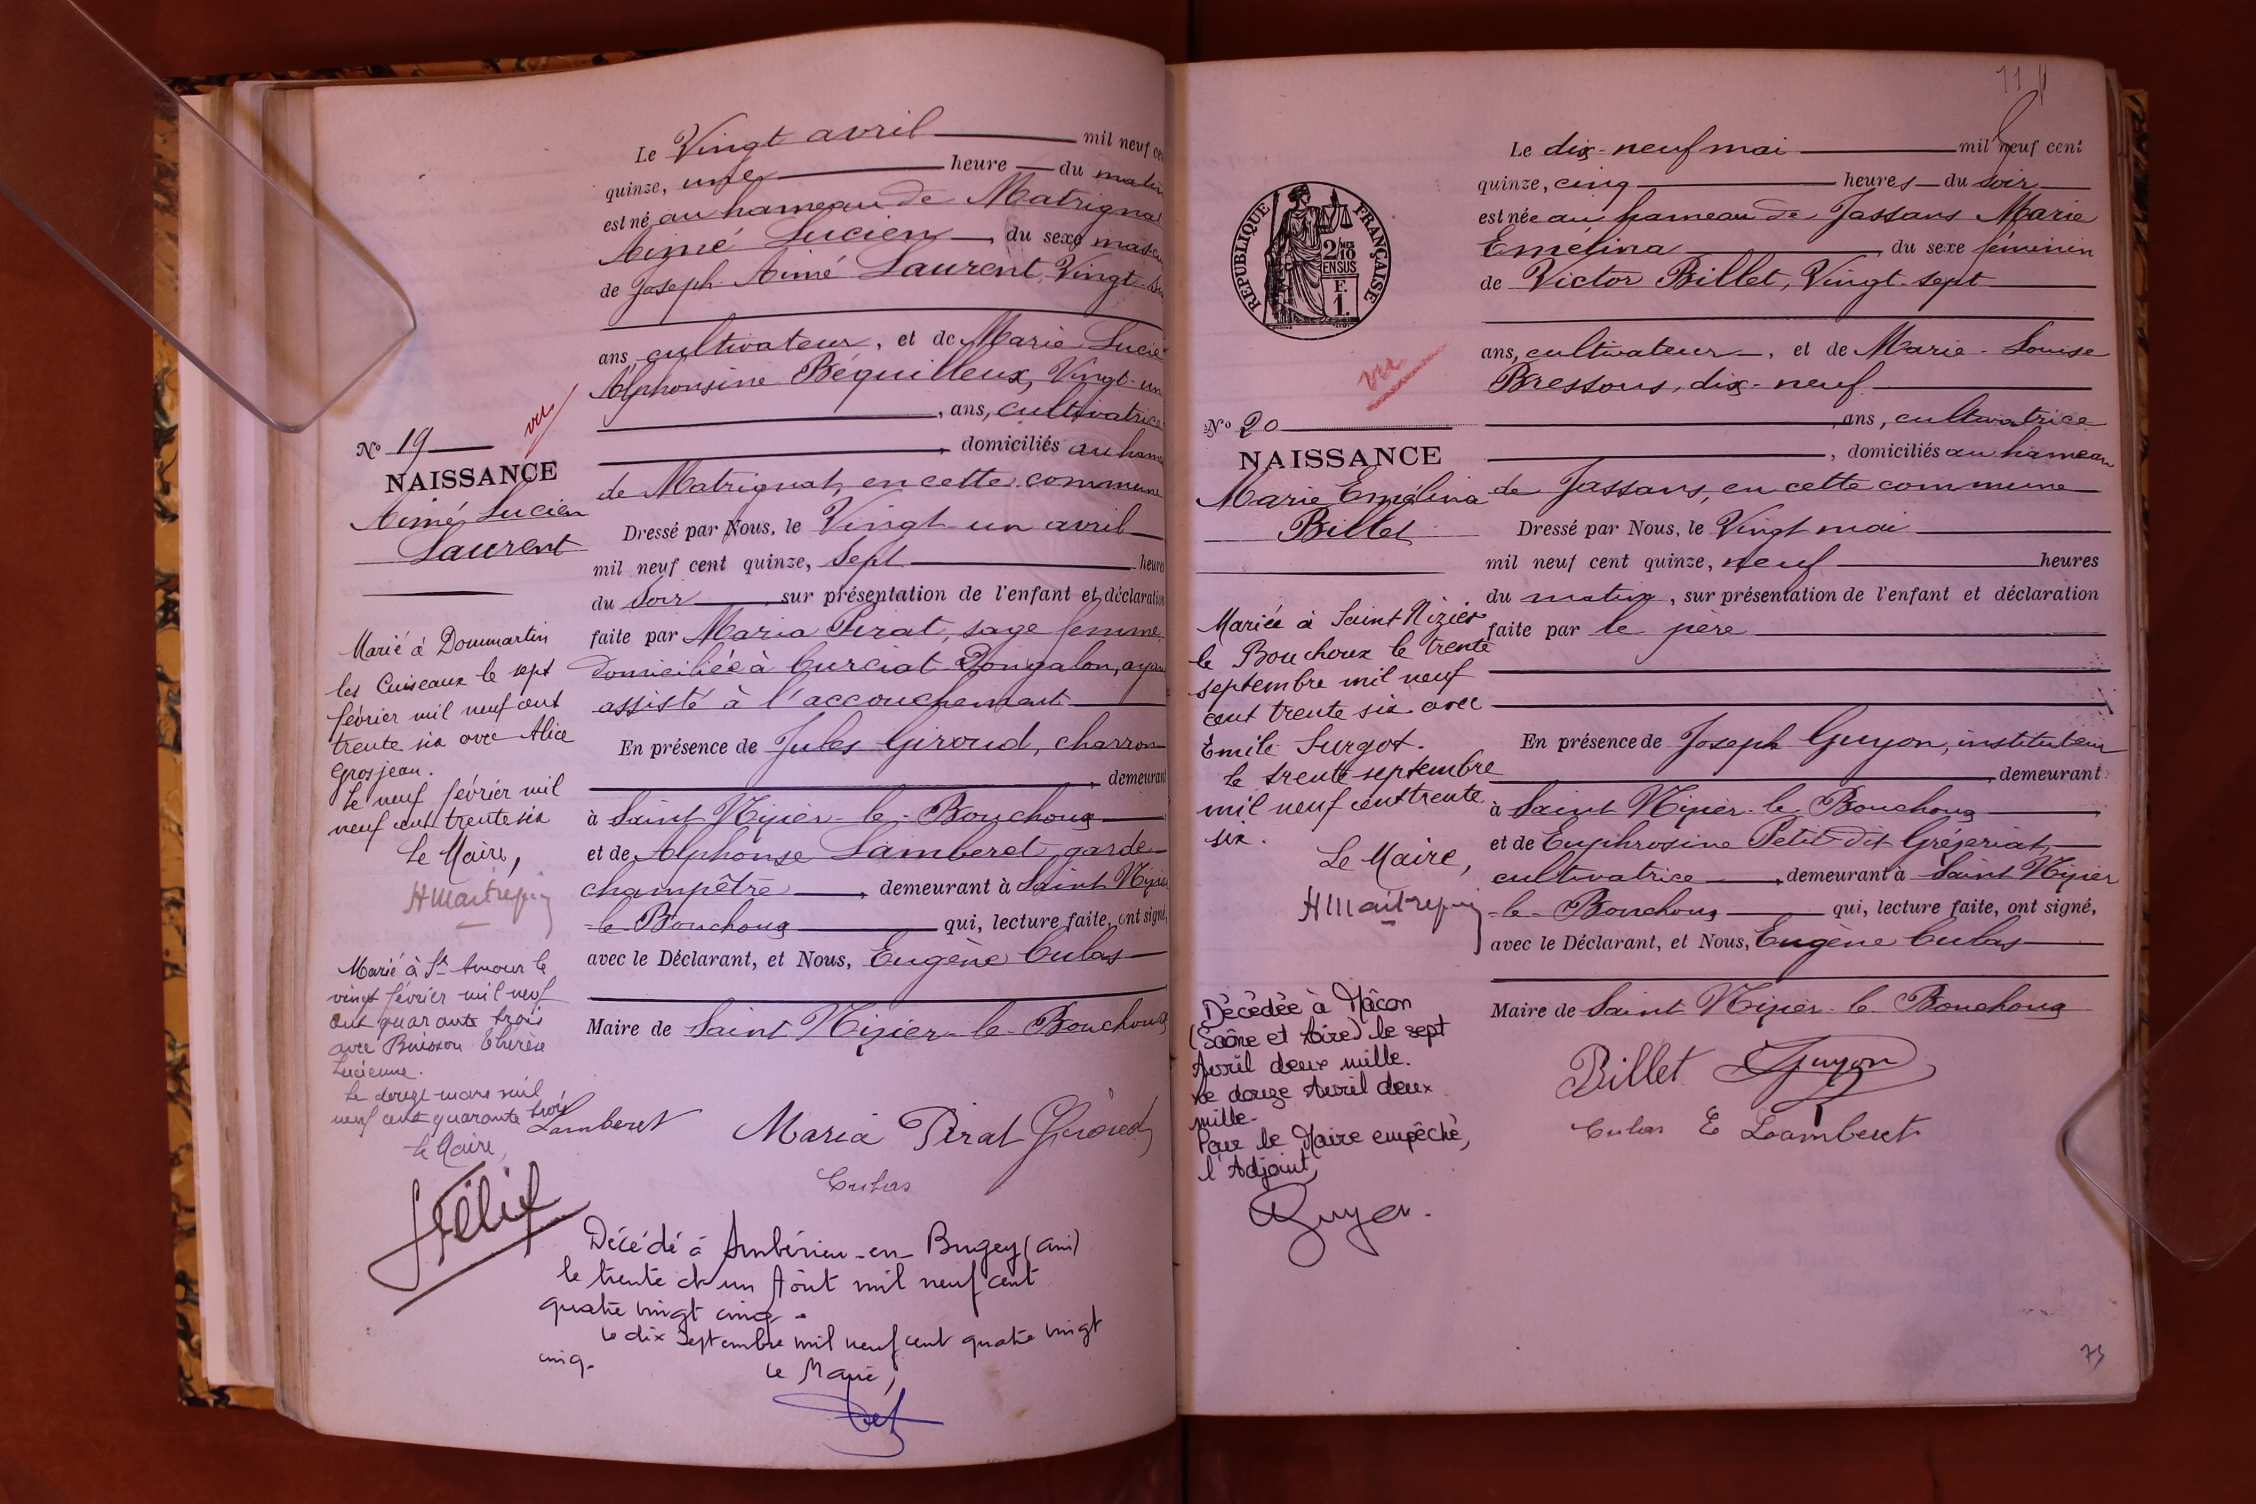 Le Vingt avril mil neuf
quinze, une heure du matin
est né au hameau de Matrignat
Aimé Lucien, du sexe
de Joseph Aimé Laurent, Vingt
ans, cultivateur, et de Marie Lucie
Alphonsine Béquilleux, Vingt-un
, ans, cultivatrice
, domiciliés au
de Matrignat, en cette commune
Nº 19
vu
NAISSANCE
Aimé Lucien
Laurent
Dressé par Nous, le Vingt-un avril
mil neuf cent quinze, sept heures
du soir, sur présentation de l'enfant et déclaration
faite par Maria Pirat, sage femme,
domiciliée à Curciat Dongalon, ayant
assisté à l'accouchement
En présence de Jules Giroud, charron
, demeurant
à Saint Nizier-le-Bouchoux
et de Alphonse Lamberet, garde
champêtre, demeurant à Saint Nizier
le-Bouchoux qui, lecture faite, ont signé,
avec le Déclarant, et Nous, Eugène Cubas
Maire de Saint Nizier-le-Bouchoux
Marié à Dommartin
les Cuiseaux le sept
février mil neuf cent
trente six avec Alice
Grosjean.
Le neuf février mil
neuf cent trente six
Le Maire,
HMaitrepierre
Marié à St Amour le
vingt février mil neuf
cent quarante trois
avec Buisson Thérèse
Lucienne.
Le douze mars mil
neuf cent quarante trois
le Maire,
Félix
Lamberet Maria Pirat Giroud
Cubas
Décédé à Ambérieu-en-Bugey (Ain)
le trente et un Août mil neuf cent
quatre vingt cinq.
Le dix Septembre mil neuf cent quatre vingt
cinq.
Le Maire,
11
Le dix-neuf mai mil neuf cent
quinze, cinq heures du soir
est née au hameau de Jassans Marie
Emélina, du sexe féminin
de Victor Billet, Vingt-sept
ans, cultivateur, et de Marie-Louise
Bressous, dix-neuf
ans, cultivatrice
, domiciliés au hameau
de Jassans, en cette commune
RÉPUBLIQUE FRANÇAISE
2/10
EN SUS
F.
1.
vu
Nº 20
NAISSANCE
Marie Emélina
Billet
Dressé par Nous, le Vingt mai
mil neuf cent quinze, neuf heures
du matin, sur présentation de l'enfant et déclaration
faite par le père
En présence de Joseph Guyon, instituteur
, demeurant
à Saint Nizier-le-Bouchoux
et de Euphrosine Petit dit Grézeriat,
cultivatrice, demeurant à Saint Nizier
-le-Bouchoux qui, lecture faite, ont signé,
avec le Déclarant, et Nous, Eugène Cubas
Maire de Saint Nizier-le-Bouchoux
Mariée à Saint Nizier
le Bouchoux le trente
septembre mil neuf
cent trente six avec
Emile Surgot.
Le trente septembre
mil neuf cent trente
six.
Le Maire,
HMaitrepierre
Décédée à Mâcon
(Saône et Loire) le sept
Avril deux mille.
Le douze Avril deux
mille.
Pour le Maire empêché,
l'Adjoint,
Billet Guyon
Cubas E Lamberet
73